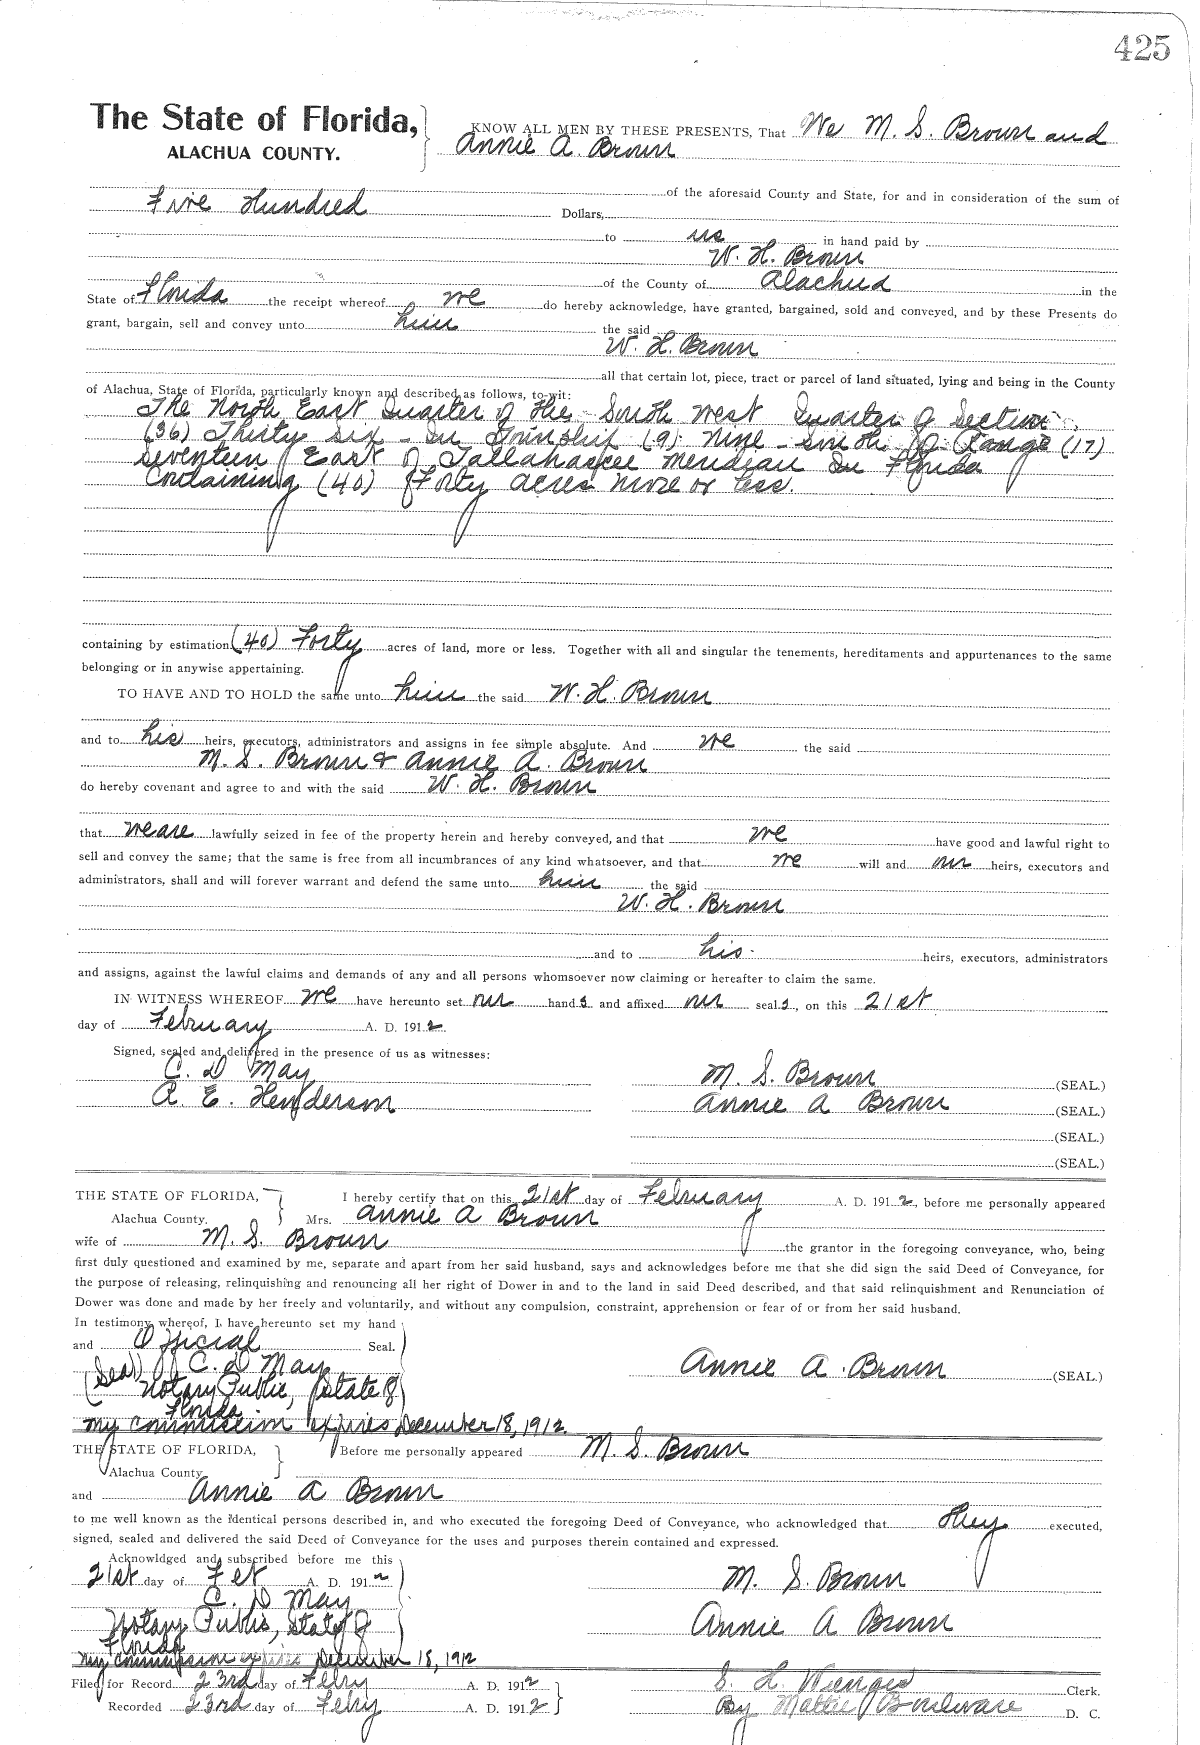 425
The State of Florida,
ALACHUA COUNTY.
KNOW ALL MEN BY THESE PRESENTS, That We M. S. Brown and
Annie A. Brown
of the aforesaid County and State, for and in consideration of the sum of
Five Hundred Dollars,
to us in hand paid by
W. H. Brown
of the County of Alachua in the
State of Florida the receipt whereof we do hereby acknowledge, have granted, bargained, sold and conveyed, and by these Presents do
grant, bargain, sell and convey unto him the said
W. H. Brown
all that certain lot, piece, tract or parcel of land situated, lying and being in the County
of Alachua, State of Florida, particularly known and described as follows, to-wit:
The North East Quarter of the South West Quarter of Section
(36) Thirty Six - In Township (9) Nine - South of Range (17)
Seventeen East of Tallahassee Meridian In Florida
Containing (40) Forty acres more or less.
containing by estimation (40) Forty acres of land, more or less. Together with all and singular the tenements, hereditaments and appurtenances to the same
belonging or in anywise appertaining.
TO HAVE AND TO HOLD the same unto him the said W. H. Brown
and to his heirs, executors, administrators and assigns in fee simple absolute. And we the said
M. S. Brown & Annie A. Brown
do hereby covenant and agree to and with the said W. H. Brown
that we are lawfully seized in fee of the property herein and hereby conveyed, and that we have good and lawful right to
sell and convey the same; that the same is free from all incumbrances of any kind whatsoever, and that we will and our heirs, executors and
administrators, shall and will forever warrant and defend the same unto him the said
W. H. Brown
and to his heirs, executors, administrators
and assigns, against the lawful claims and demands of any and all persons whomsoever now claiming or hereafter to claim the same.
IN WITNESS WHEREOF we have hereunto set our hands and affixed our seals, on this 21st
day of February A. D. 1912
Signed, sealed and delivered in the presence of us as witnesses:
C. D May
M. S. Brown (SEAL.)
R. E. Henderson
Annie A Brown (SEAL.)
(SEAL.)
(SEAL.)
THE STATE OF FLORIDA,
Alachua County.
I hereby certify that on this 21st day of February A. D. 1912, before me personally appeared
Mrs. Annie A Brown
wife of M. S. Brown the grantor in the foregoing conveyance, who, being
first duly questioned and examined by me, separate and apart from her said husband, says and acknowledges before me that she did sign the said Deed of Conveyance, for
the purpose of releasing, relinquishing and renouncing all her right of Dower in and to the land in said Deed described, and that said relinquishment and Renunciation of
Dower was done and made by her freely and voluntarily, and without any compulsion, constraint, apprehension or fear of or from her said husband.
In testimony whereof, I have hereunto set my hand
and Official Seal.
(Seal) C. D May
Annie A. Brown (SEAL.)
Notary Public, State of
Florida
My commission expires December 18, 1912.
THE STATE OF FLORIDA,
Alachua County
Before me personally appeared M. S. Brown
and Annie A Brown
to me well known as the identical persons described in, and who executed the foregoing Deed of Conveyance, who acknowledged that they executed,
signed, sealed and delivered the said Deed of Conveyance for the uses and purposes therein contained and expressed.
Acknowldged and subscribed before me this
21st day of Feb A. D. 1912
M. S. Brown
C. D May
Notary Public, State of
Annie A Brown
Florida
My commission expires December 18, 1912
Filed for Record 23rd day of Febry A. D. 1912
S. H. Wienges Clerk.
Recorded 23rd day of Febry A. D. 1912
By Mattie Boulware D. C.